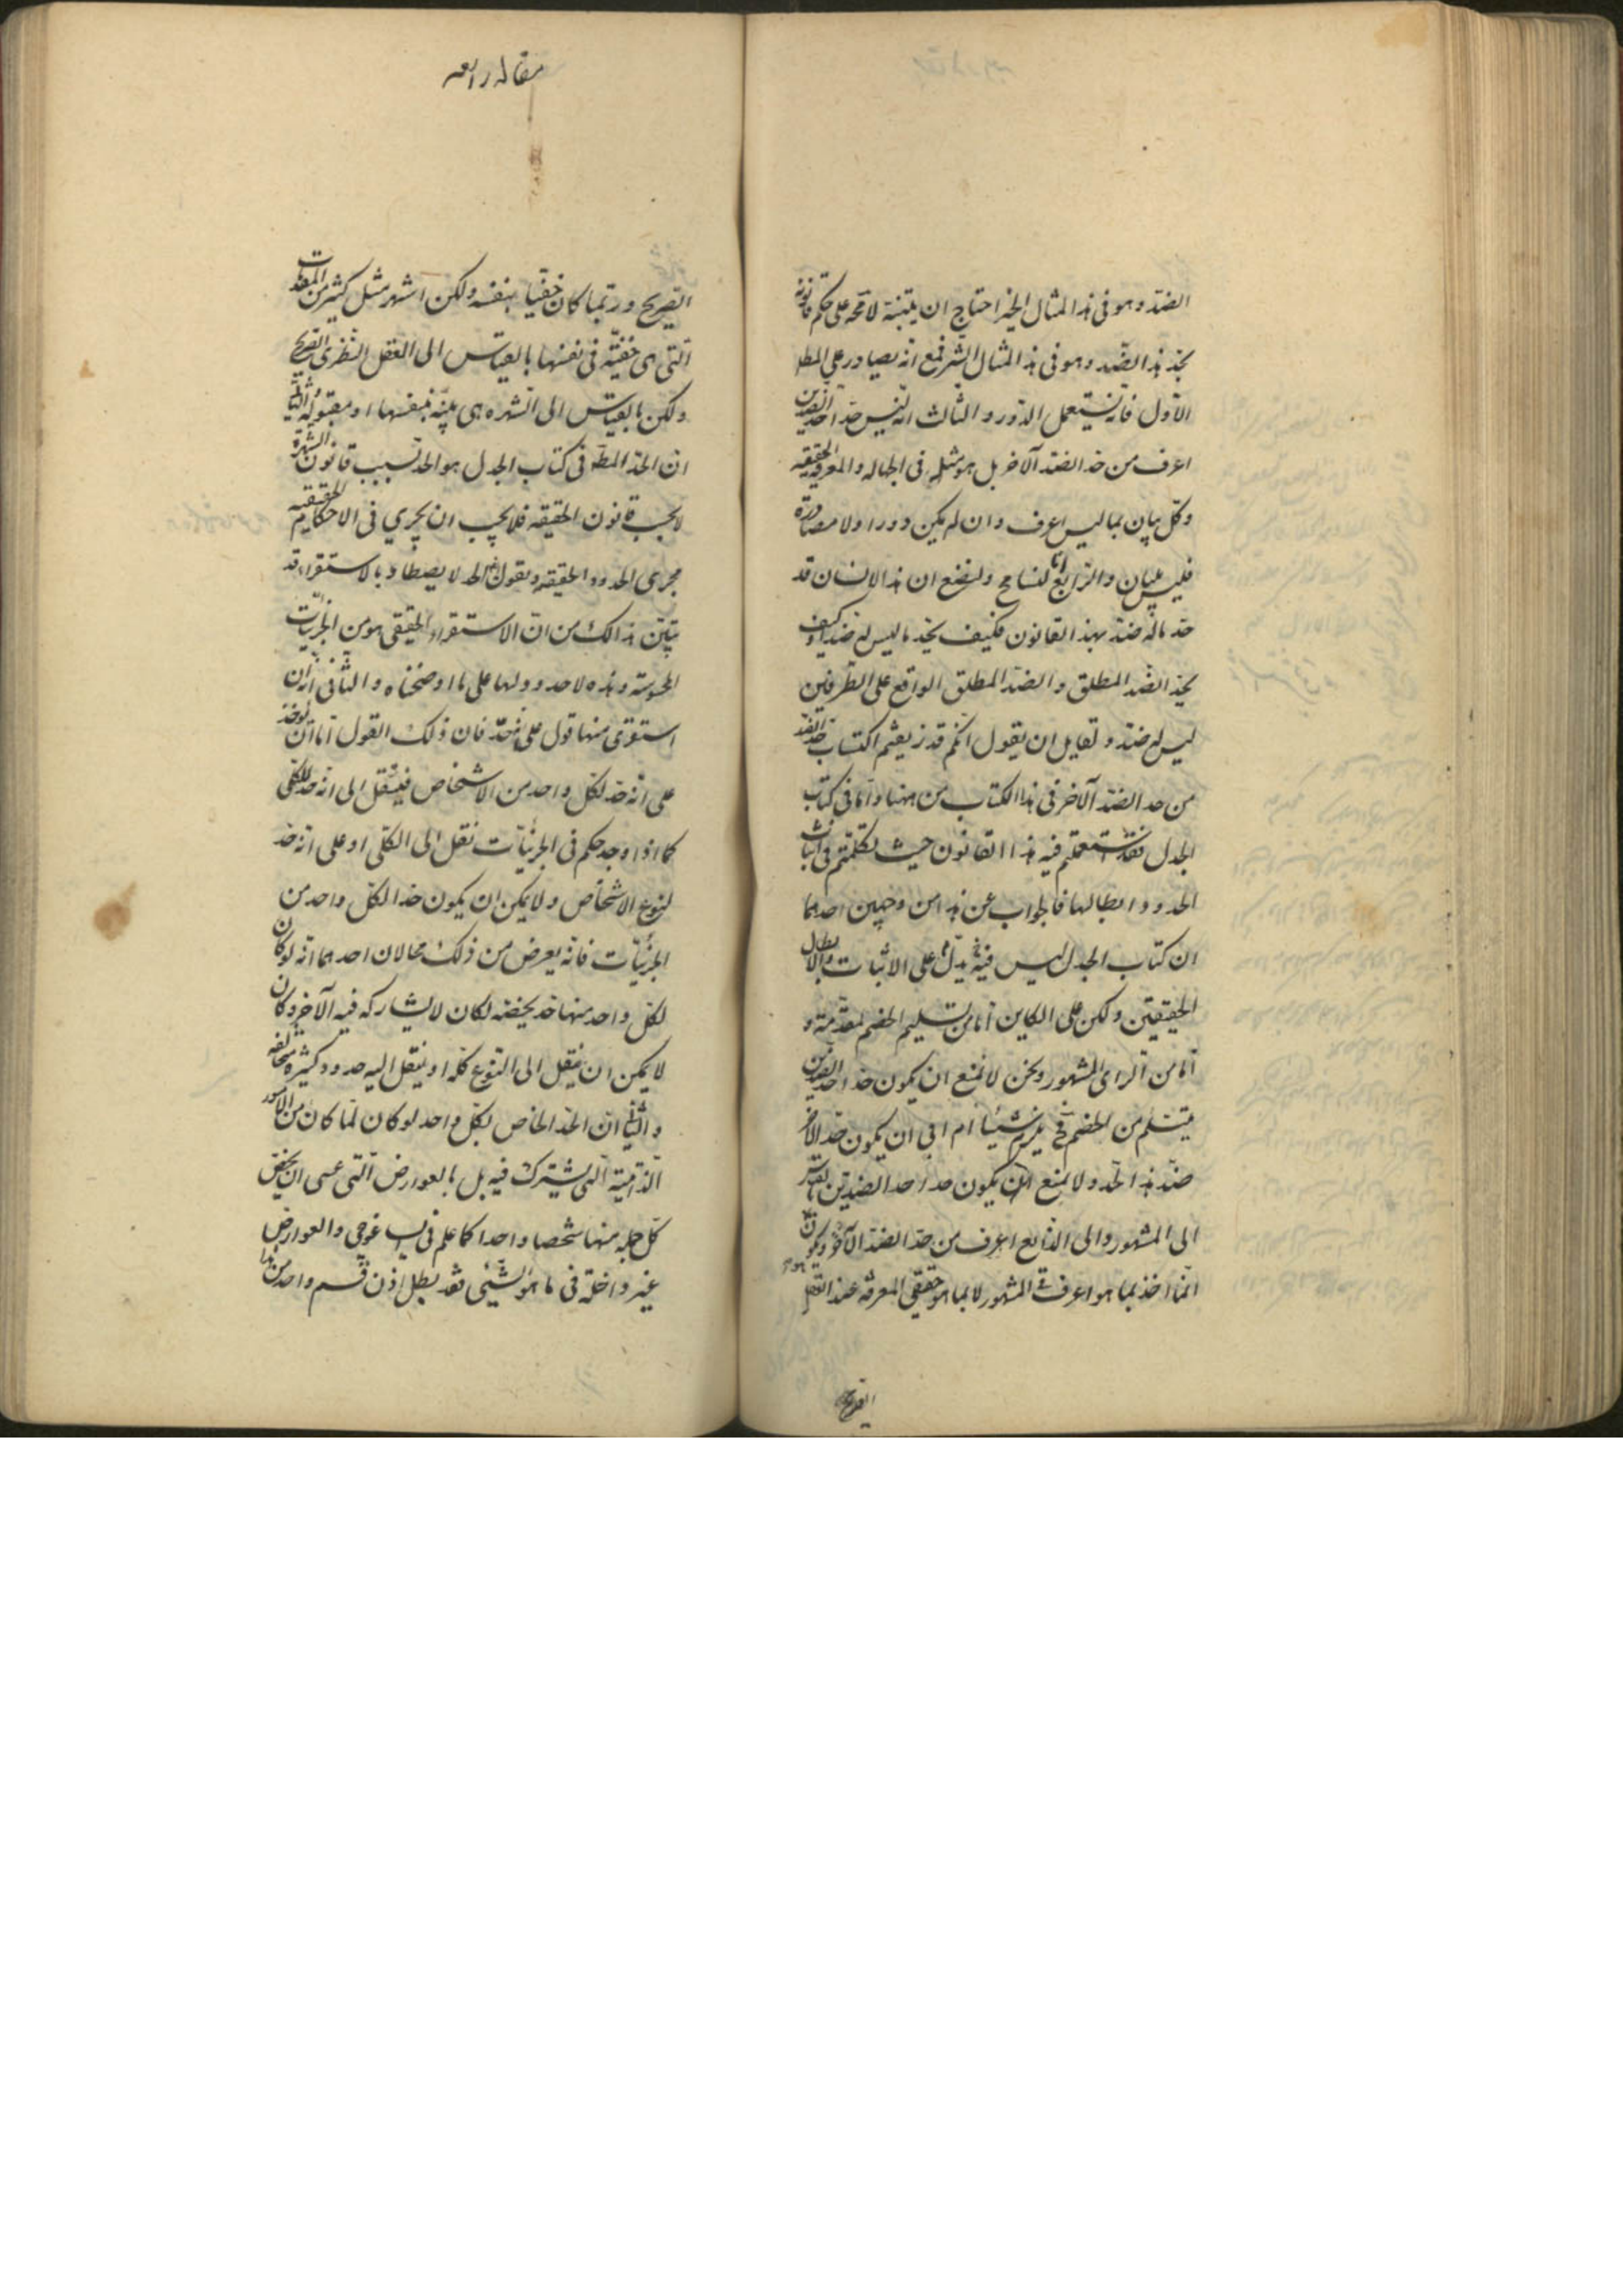 الضد وهو فى هذا المثال الخير احتاج ان يتبنه لا محه على حكم قانونه
بحد هذا الضد وهو فى هذا المثال الشر فمع انه يصادر على المط
الاول فانه يستعمل الدور والثالث انه ليس حد احد الضدين
اعرف من حد الضد الآخر بل هو مثله فى الجهاله والمعرفه الحقيقيه
وكل بيان بما ليس اعرف وان لم يكن دورا ولا مصادرة
فليس ببيان والرابع انا لنسامح ولنضع ان هذا الانسان قد
حد ماله ضد بهذا القانون فكيف يحد ما ليس له ضد او كيف
يحد الضد المطلق والضد المطلق الواقع على الطرفين
ليس له ضد ولقايل ان يقول انكم قد زيفتم اكتساب حد الضد
من حد الضد الآخر فى هذا الكتاب من ههنا واما فى كتاب
الجدل فقد استعملتم فيه هذا القانون حيث تكلمتم فى اثبات
الحدود وابطالها فالجواب عن هذا من وجهين احدهما
ان كتاب الجدل ليس فيه يدل على الاثبات والابطال
الحقيقين ولكن على الكاين اما من تسليم الخصم لمقدمة و
اما من الراى المشهور ونحن لا نمنع ان يكون حد احد الضدين
يتسلم من الخصم فيلزم شيئا ام ابى ان يكون حد الاخر
ضد هذا الحد ولا نمنع ان يكون حد احد الضدين بالقياس
الى المشهور والى الذايع اعرف من حد الضد الآخر ويكون
انما اخذ بما هو اعرف فى المشهور لا بما هو حقيقى المعرفه عند العقل
الصريح
مقاله رابعه
الصريح وربما كان خفيا بنفسه ولكن اشهر مثل كثير من المقدمات
التى هى خفيه فى نفسها بالقياس الى العقل النظرى الصريح
ولكن بالقياس الى الشهره هى بينه بنفسها او مقبوله والثانى
ان الحد المط فى كتاب الجدل هو الحد بسبب قانون الشهرة
لا بحسب قانون الحقيقه فلا يجب ان يجري فى الاحكام الحقيقيه
مجرى الحدود الحقيقه ونقول ان الحد لا يصطاد بالاستقراء قد
تبين ذالك من ان الاستقراء الحقيقى هو من الجزئيات
المحسوسة وهذه لا حدود لها على ما اوضحناه والثانى ان
استوقى منها قول على حد فان ذلك القول اما ان يوخذ
على انه حد لكل واحد من الاشخاص فينقل الى انه حد للكلى
كما اذا وجد حكم فى الجزئيات نقل الى الكلى او على انه حد
لنوع الاشخاص ولا يمكن ان يكون حدا لكل واحد من
الجزئيات فانه يعرض من ذلك محالان احدهما انه لو كان
لكل واحد منها حد يخصه لكان لا يشاركه فيه الآخر وكان
لا يمكن ان ينقل الى النوع كله او ينقل اليه حدود كثيره مخالفه
والثانى ان الحد الخاص بكل واحد لو كان لما كان من الامور
الذاتية التى يشترك فيه بل بالعوارض التى عسى ان يخص
كل جمله منها شخصا واحدا كما علم فى ايساغوجى والعوارض
غير داخلة فى ما هو الشئى فقد بطل اذن قسم واحد من هذا